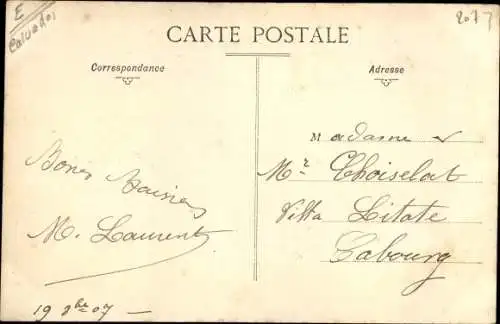 E
Calvados
2077
CARTE POSTALE
Correspondance
Adresse
Bons Baisers
M. Laurent
19 8bre 07
Madame et
Mr Choiselat
Villa Litate
Cabourg